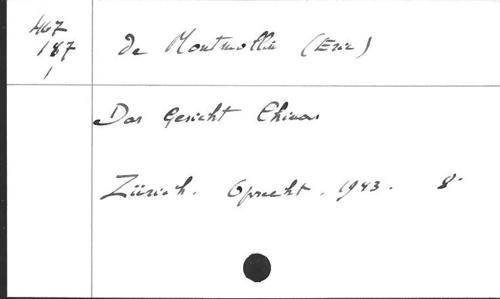 467
187
1
de Montmollin (Eric)
Das Gesicht Chinas
Zürich. Oprecht. 1943. 8°